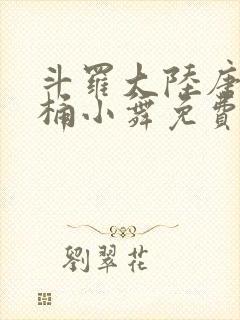 斗羅大陸唐
桶小舞免費
劉翠花